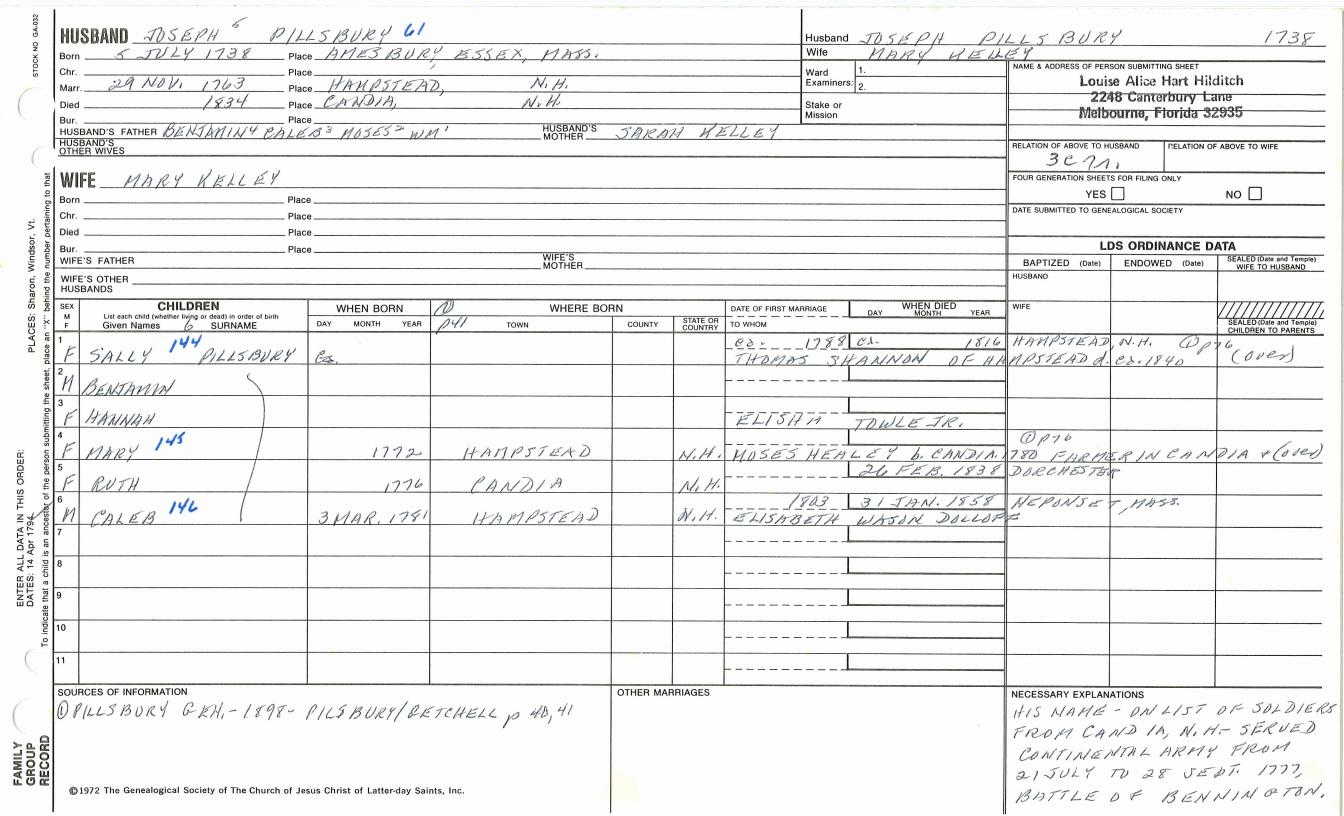 STOCK NO. GA-032
HUSBAND JOSEPH 5 PILLSBURY 61
Born 5 JULY 1738 Place AMESBURY, ESSEX, MASS.
Chr. Place
Marr. 29 NOV. 1763 Place HAMPSTEAD, N.H.
Died 1834 Place CANDIA, N.H.
Bur. Place
HUSBAND'S FATHER BENJAMIN4 CALEB3 MOSES2 WM1 HUSBAND'S MOTHER SARAH KELLEY
HUSBAND'S OTHER WIVES
Husband JOSEPH PILLSBURY 1738
Wife MARY KELLEY
Ward Examiners: 1.
2.
Stake or Mission
NAME & ADDRESS OF PERSON SUBMITTING SHEET
Louise Alice Hart Hilditch
2248 Canterbury Lane
Melbourne, Florida 32935
RELATION OF ABOVE TO HUSBAND RELATION OF ABOVE TO WIFE
FOUR GENERATION SHEETS FOR FILING ONLY
YES NO
DATE SUBMITTED TO GENEALOGICAL SOCIETY
WIFE MARY KELLEY
Born Place
Chr. Place
Died Place
Bur. Place
WIFE'S FATHER WIFE'S MOTHER
WIFE'S OTHER HUSBANDS
LDS ORDINANCE DATA
BAPTIZED (Date) ENDOWED (Date) SEALED (Date and Temple) WIFE TO HUSBAND
HUSBAND
WIFE
SEALED (Date and Temple) CHILDREN TO PARENTS
SEX M F
CHILDREN
List each child (whether living or dead) in order of birth
Given Names 6 SURNAME
WHEN BORN
DAY MONTH YEAR
① p41
WHERE BORN
TOWN COUNTY STATE OR COUNTRY
DATE OF FIRST MARRIAGE
TO WHOM
WHEN DIED
DAY MONTH YEAR
1 ca. 1788 ca. 1816 HAMPSTEAD, N.H. ① p76
F SALLY 144 PILLSBURY ca. THOMAS SHANNON OF HAMPSTEAD d. ca. 1840 (over)
2
M BENJAMIN
3
F HANNAH ELISHA TOWLE JR.
4 ① p76
F MARY 145 1772 HAMPSTEAD N.H. MOSES HEALEY b. CANDIA. 1780 FARMER IN CANDIA + (over)
5 26 FEB. 1838 DORCHESTER
F RUTH 1776 CANDIA N.H.
6 1803 31 JAN. 1858 NEPONSET, MASS.
M CALEB 146 3 MAR. 1781 HAMPSTEAD N.H. ELISABETH WASON DOLLOFF
7
8
9
10
11
SOURCES OF INFORMATION
① PILLSBURY GEN. - 1898 - PILSBURY/GETCHELL p 40, 41
OTHER MARRIAGES
NECESSARY EXPLANATIONS
HIS NAME - ON LIST OF SOLDIERS
FROM CANDIA, N.H. - SERVED
CONTINENTAL ARMY FROM
21 JULY TO 28 SEPT. 1777,
BATTLE OF BENNINGTON.
©1972 The Genealogical Society of The Church of Jesus Christ of Latter-day Saints, Inc.
PLACES: Sharon, Windsor, Vt.
ENTER ALL DATA IN THIS ORDER:
DATES: 14 Apr 1794
To indicate that a child is an ancestor of the person submitting the sheet, place an "X" behind the number pertaining to that
FAMILY
GROUP
RECORD